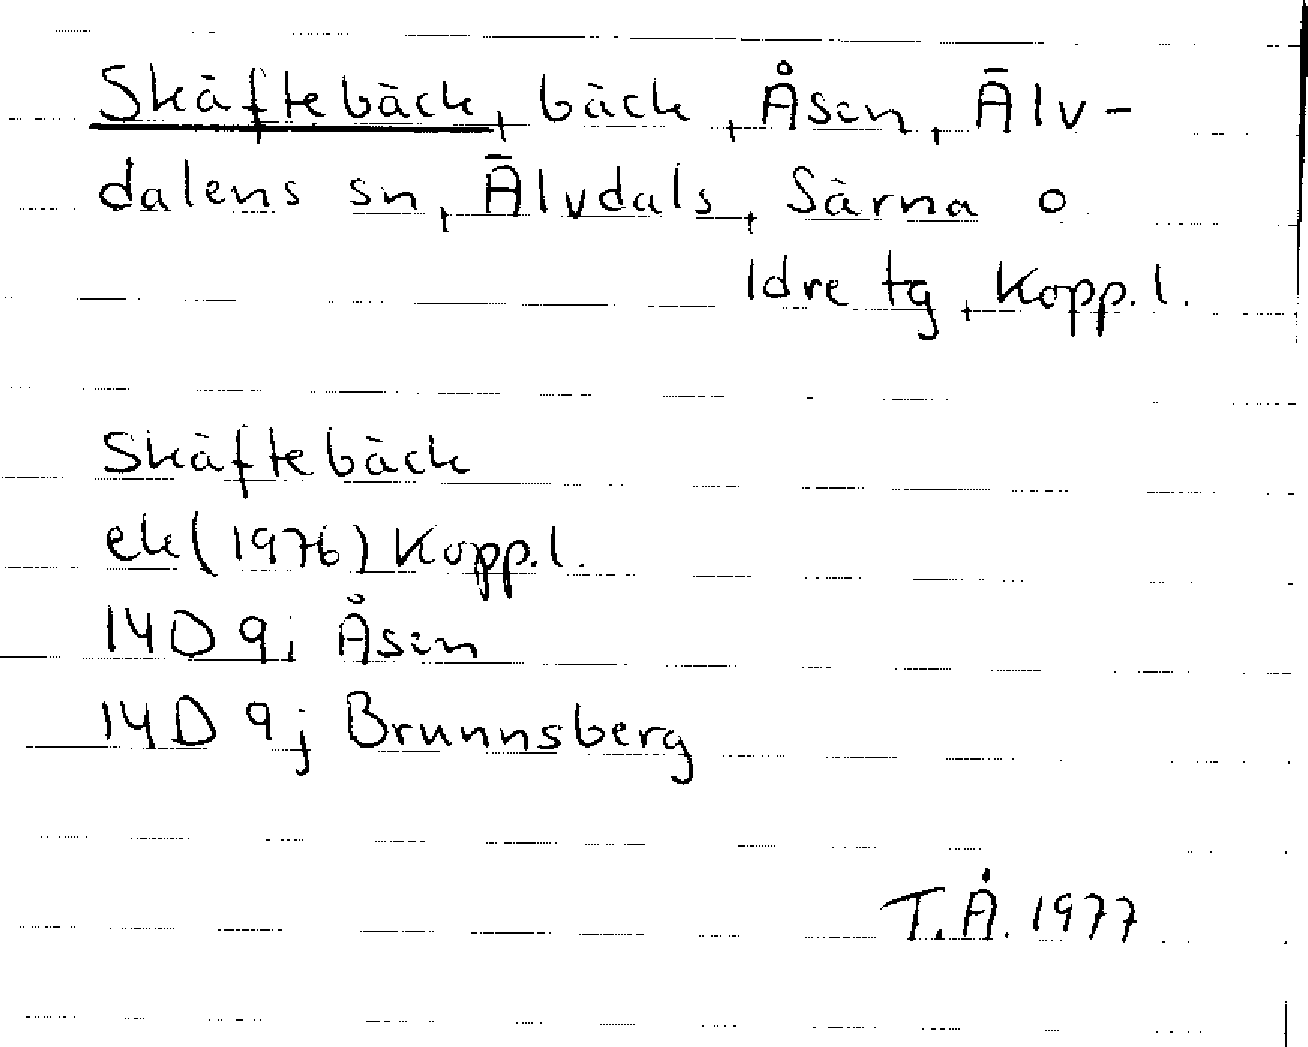 Skäftebäck, bäck, Åsen, Älv-
dalens sn, Älvdals, Särna o
Idre tg, Kopp. l.
Skäftebäck
ek (1976) Kopp. l.
14D 9i Åsen
14D 9j Brunnsberg
T.Å. 1977